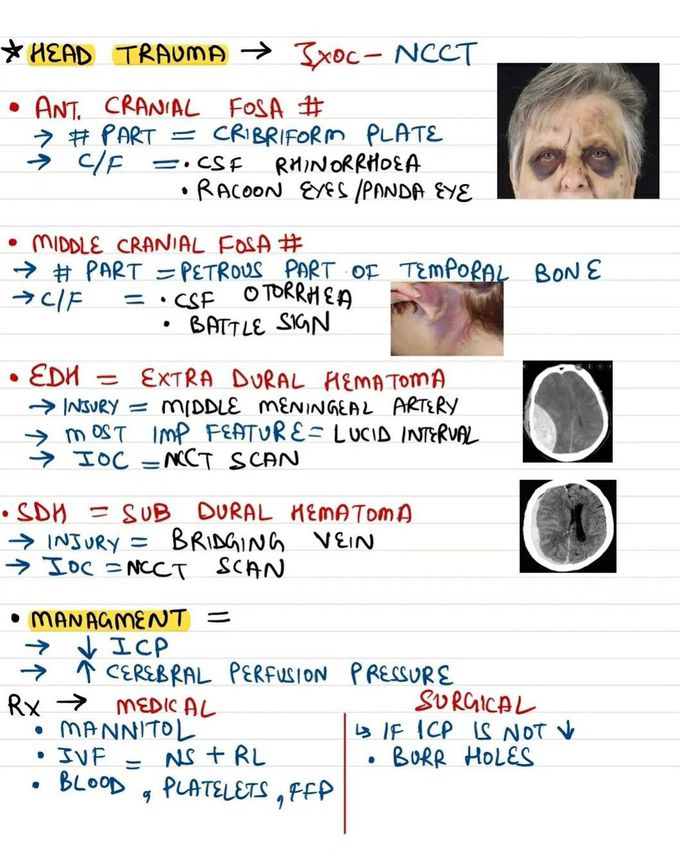 ★ HEAD TRAUMA → IxOC - NCCT
• ANT. CRANIAL FOSA #
→ # PART = CRIBRIFORM PLATE
→ C/F = • CSF RHINORRHOEA
• RACOON EYES/PANDA EYE
• MIDDLE CRANIAL FOSA #
→ # PART = PETROUS PART OF TEMPORAL BONE
→ C/F = • CSF OTORRHEA
• BATTLE SIGN
• EDH = EXTRA DURAL HEMATOMA
→ INJURY = MIDDLE MENINGEAL ARTERY
→ MOST IMP FEATURE = LUCID INTERVAL
→ IOC = NCCT SCAN
• SDH = SUB DURAL HEMATOMA
→ INJURY = BRIDGING VEIN
→ IOC = NCCT SCAN
• MANAGMENT =
→ ↓ ICP
→ ↑ CEREBRAL PERFUSION PRESSURE
Rx → MEDICAL
• MANNITOL
• IVF = NS + RL
• BLOOD, PLATELETS, FFP
SURGICAL
↳ IF ICP IS NOT ↓
• BURR HOLES